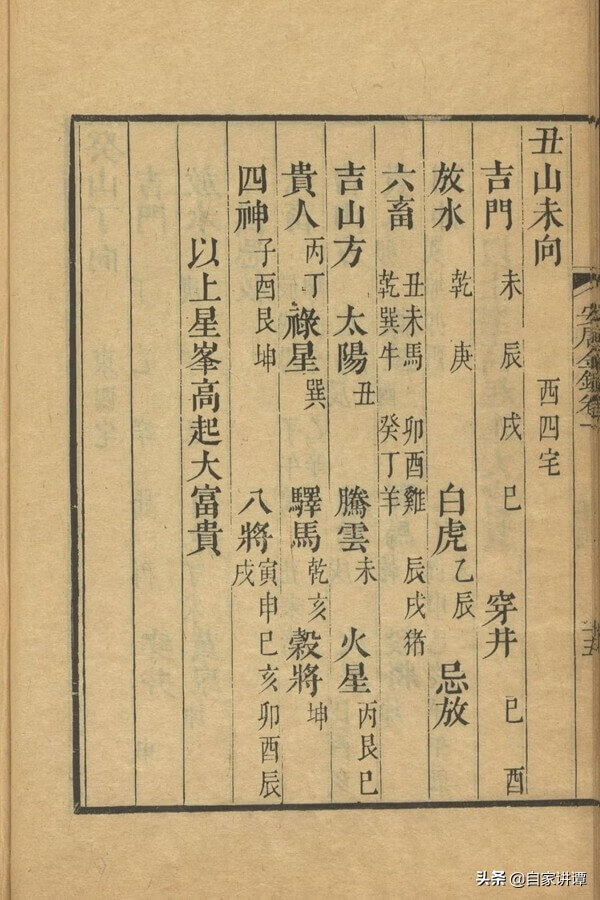 丑山未向 西四宅
吉門 未 辰 戌 巳 穿井 巳 酉
放水 乾 庚 白虎 乙辰 忌放
六畜 丑未馬 卯酉雞 辰戌豬 乾巽牛 癸丁羊
吉山方 太陽 丑 騰雲 未 火星 丙艮巳
貴人 丙丁 祿星 巽 驛馬 乾亥 穀將 坤
四神 子酉艮坤 八將 寅申巳亥卯酉辰戌
以上星峯高起大富貴
安居金鏡卷一
头条 @自家讲谭